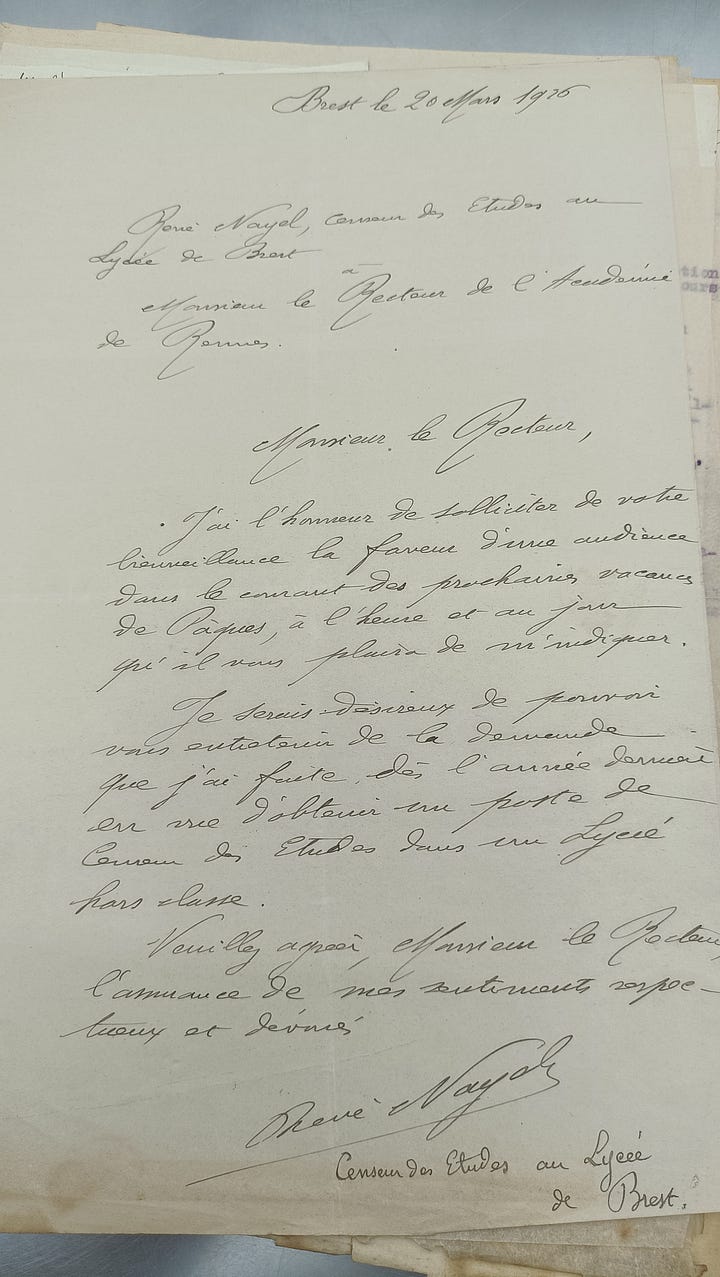 Brest le 20 Mars 1926
René Nayel, Censeur des Etudes au
Lycée de Brest
à
Monsieur le Recteur de l'Académie
de Rennes.
Monsieur le Recteur,
J'ai l'honneur de solliciter de votre
bienveillance la faveur d'une audience
dans le courant des prochaines vacances
de Pâques, à l'heure et au jour
qu'il vous plaira de m'indiquer.
Je serais désireux de pouvoir
vous entretenir de la demande
que j'ai faite, dès l'année dernière
en vue d'obtenir un poste de
Censeur des Etudes dans un Lycée
hors classe.
Veuillez agréer, Monsieur le Recteur,
l'assurance de mes sentiments respec-
tueux et dévoués
René Nayel
Censeur des Etudes au Lycée
de Brest.